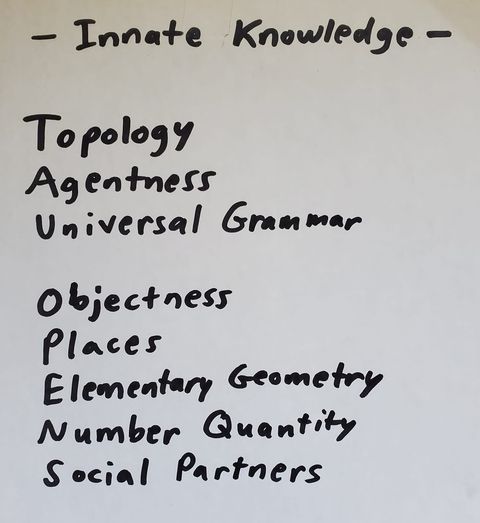 - Innate Knowledge -
Topology
Agentness
Universal Grammar
Objectness
Places
Elementary Geometry
Number Quantity
Social Partners